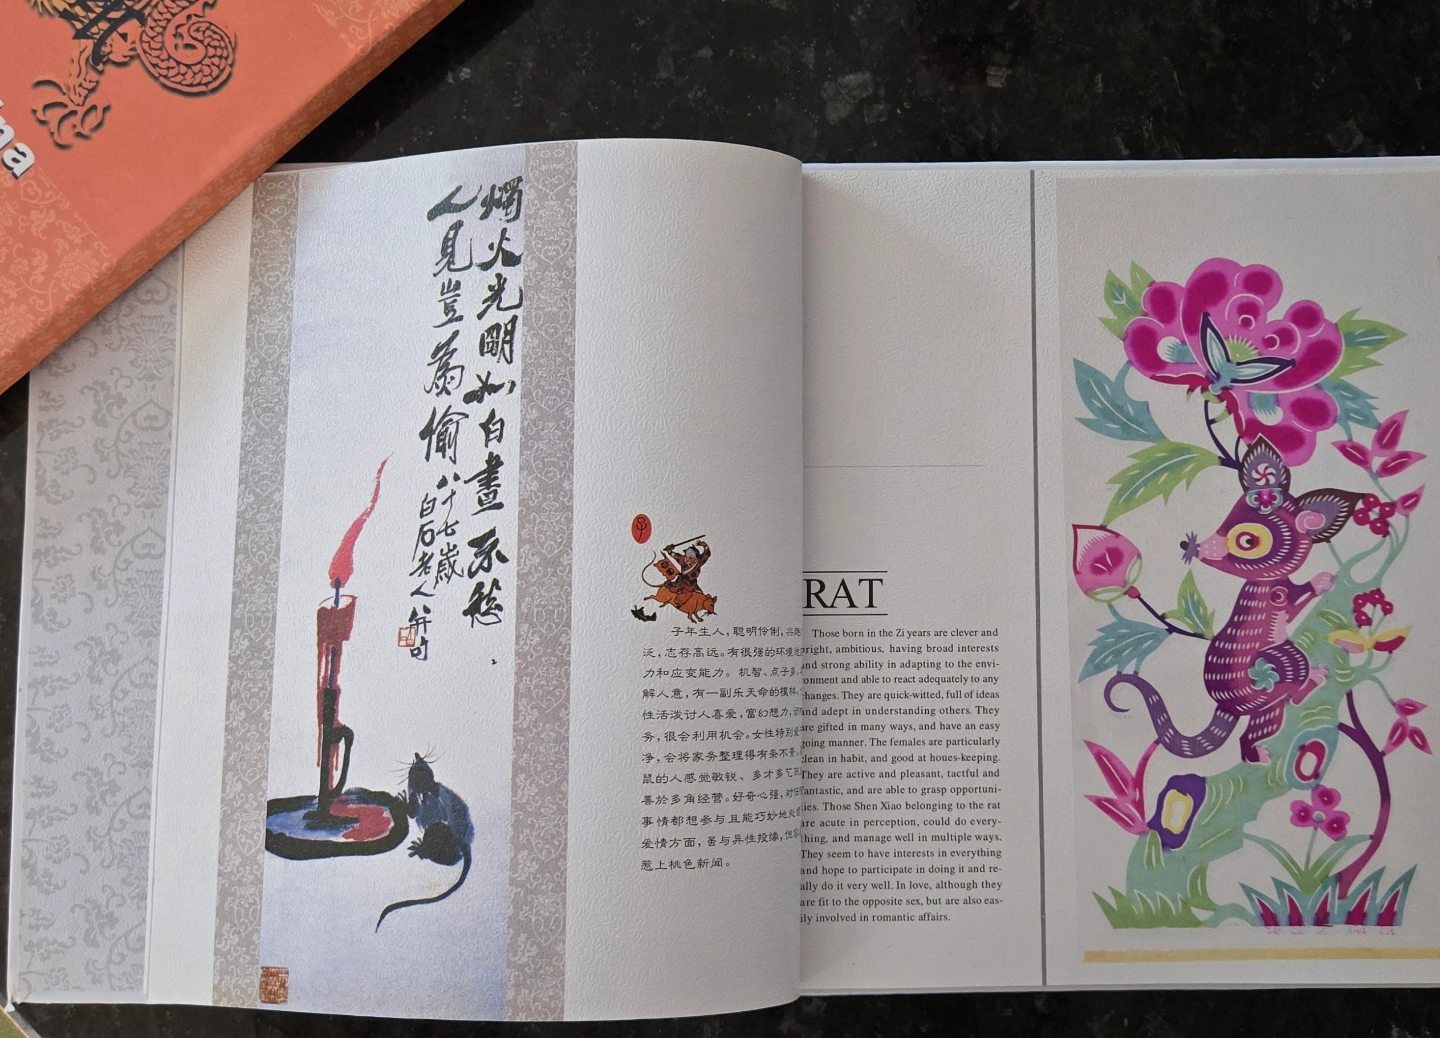 na
燭火光明如白晝不愁
人見豈為偷
八十七歲
白石老人并句
子年生人，聪明伶俐，兴趣
泛，志存高远。有很强的环境适
力和应变能力。机智、点子多，
解人意，有一副乐天命的模样。
性活泼讨人喜爱，富幻想力，
务，很会利用机会。女性特别爱
净，会将家务整理得有条不紊。
鼠的人感觉敏锐、多才多艺
善於多角经营。好奇心强，对任何
事情都想参与且能巧妙地处理
爱情方面，虽与异性投缘，但容
惹上桃色新闻。
RAT
Those born in the Zi years are clever and
bright, ambitious, having broad interests
and strong ability in adapting to the envi-
ronment and able to react adequately to any
changes. They are quick-witted, full of ideas
and adept in understanding others. They
are gifted in many ways, and have an easy
going manner. The females are particularly
clean in habit, and good at houes-keeping.
They are active and pleasant, tactful and
fantastic, and are able to grasp opportuni-
ties. Those Shen Xiao belonging to the rat
are acute in perception, could do every-
thing, and manage well in multiple ways.
They seem to have interests in everything
and hope to participate in doing it and re-
ally do it very well. In love, although they
are fit to the opposite sex, but are also eas-
ily involved in romantic affairs.